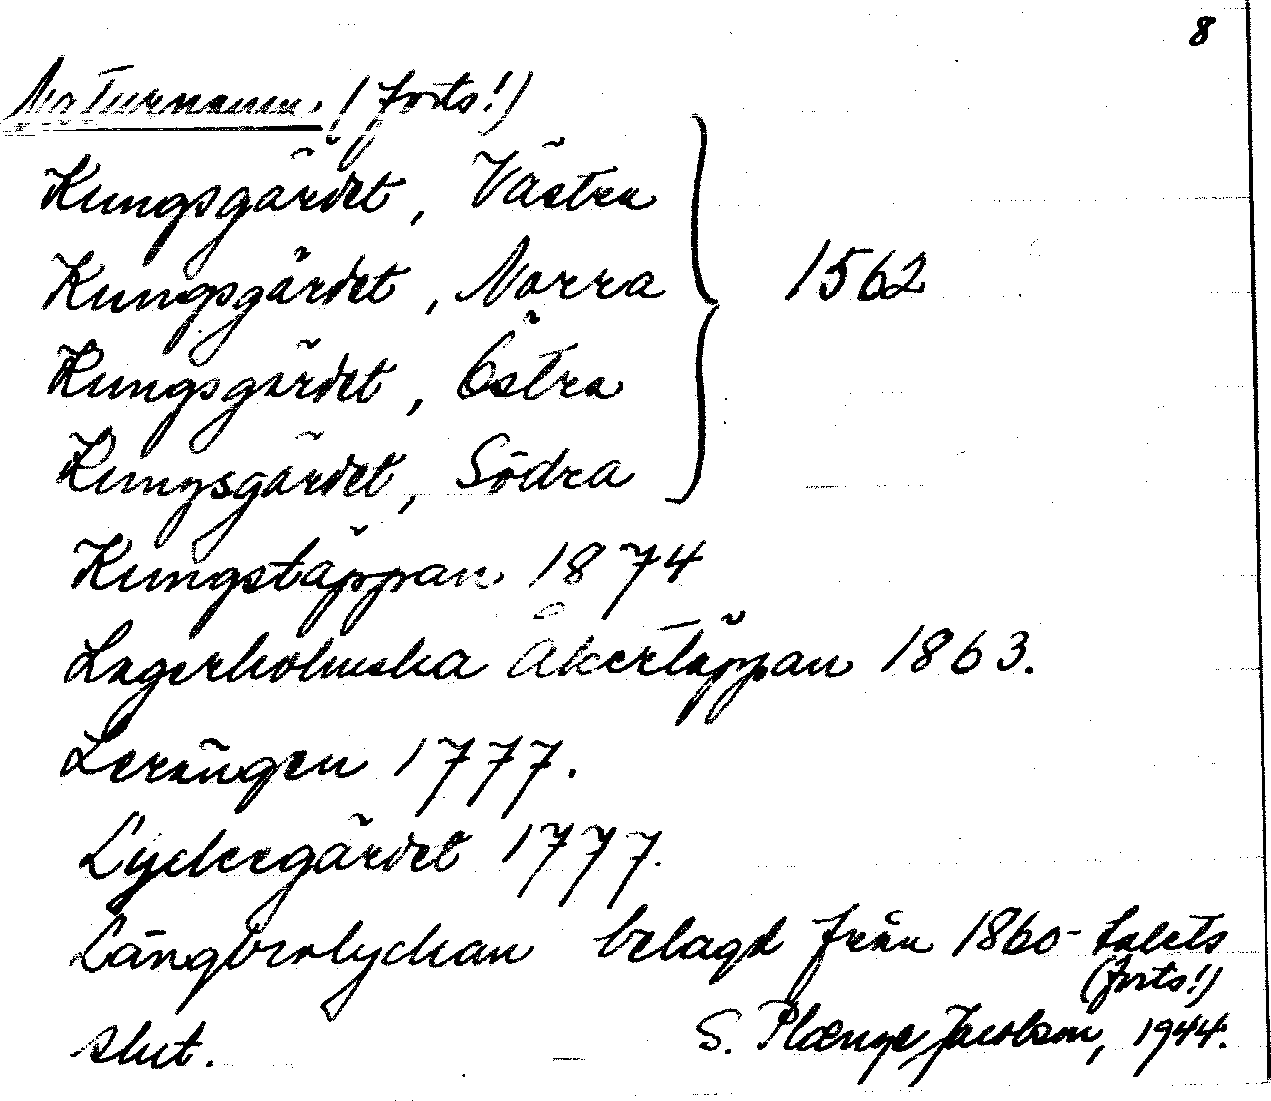 8
Naturnamn. (forts!)
Kungsgärdet, Västra
Kungsgärdet, Norra 1562
Kungsgärdet, Östra
Kungsgärdet, Södra
Kungstäppan 1874
Lagerholmska Åkertäppan 1863.
Lerängen 1777.
Lyckegärdet 1777.
Långbrolyckan belagd från 1860-talets
(forts!)
slut. S. Plænge Jacobson, 1944.